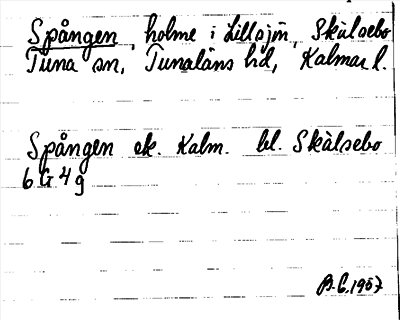 Spången, holme i Lillsjön, Skälsebo
Tuna sn, Tunaläns hd, Kalmar l.
Spången ek. Kalm. bl. Skälsebo
6 G 4 g
B.E. 1957